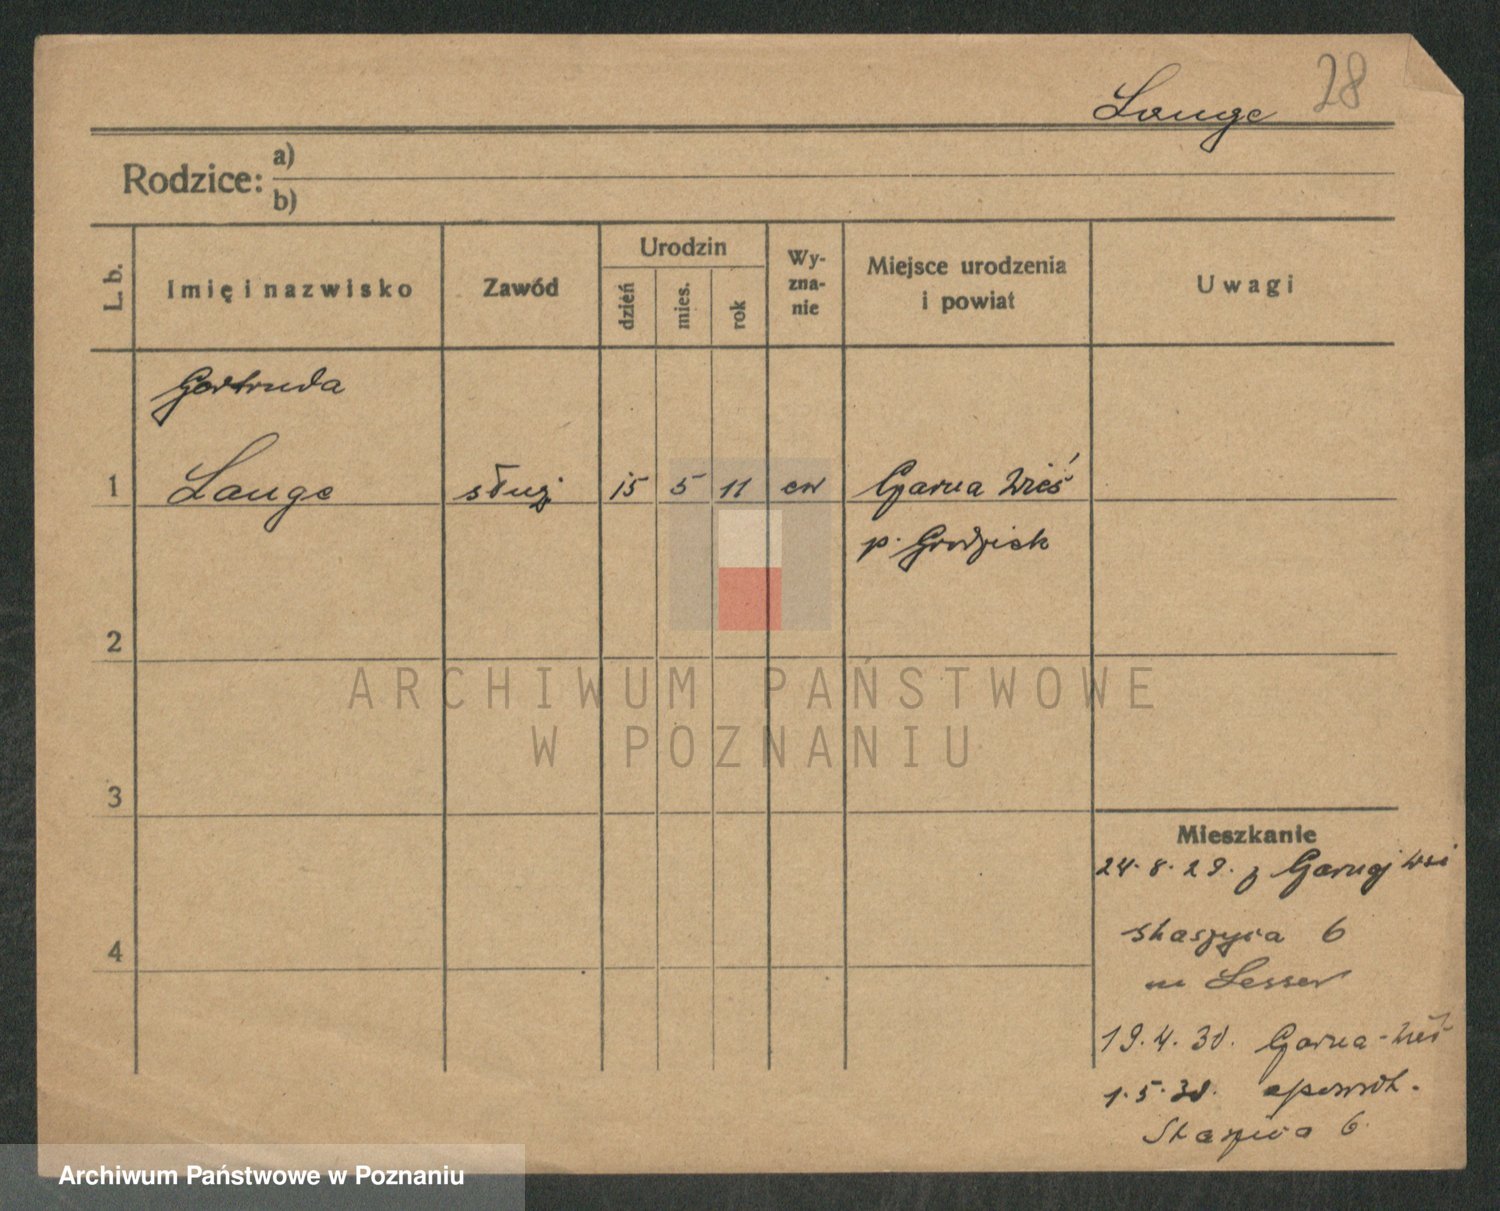 Lange 28
Rodzice: a)
b)
L. b. Imię i nazwisko Zawód Urodzin dzień mies. rok Wy-zna-nie Miejsce urodzenia i powiat Uwagi
Gertruda
1 Lange służ 15 5 11 ew Czarna Wieś
p. Grodzisk
2
ARCHIWUM PAŃSTWOWE
W POZNANIU
3
Mieszkanie
24.8.29. z Czarnej wsi
4
Staszyca 6
Lesser
19.4.30. Czarna-Wieś
1.5.30. spowrot.
Staszica 6
Archiwum Państwowe w Poznaniu